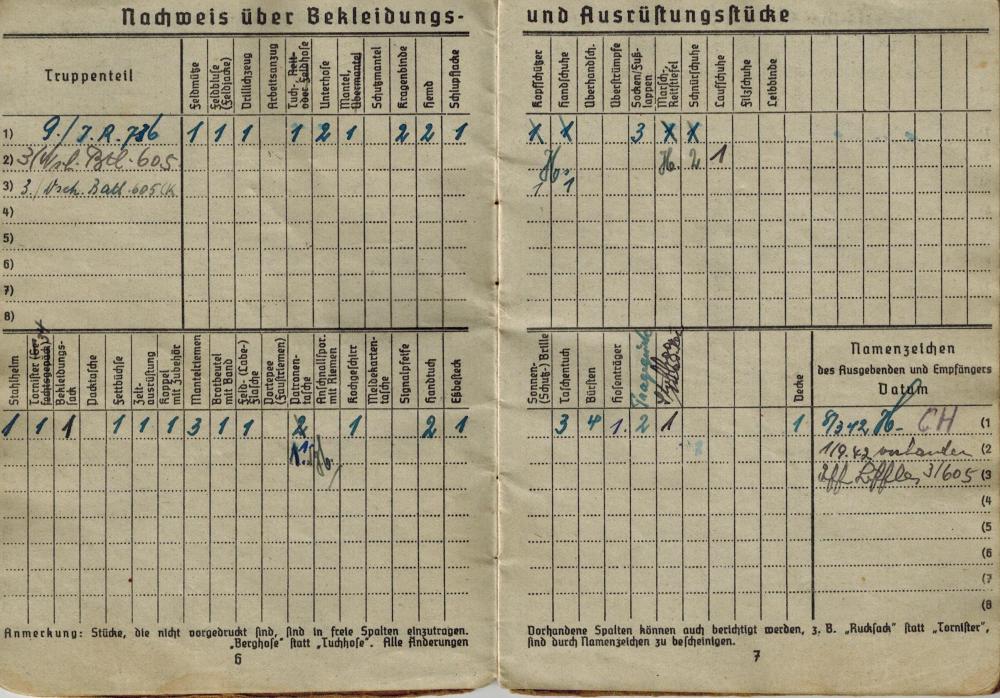 Nachweis über Bekleidungs- und Ausrüstungsstücke
Truppenteil
Feldmütze
Feldbluse (Feldjacke)
Drillichzeug
Arbeitsanzug
Tuch-, Reit- oder Feldhose
Unterhose
Mantel, Übermantel
Schutzmantel
Kragenbinde
Hemd
Schlupfjacke
Kopfschützer
Handschuhe
Überhandsch.
Überstrümpfe
Socken/Fußlappen
Marsch-, Reitstiefel
Schnürschuhe
Laufschuhe
Filzschuhe
Leibbinde
1) 9./J.R. 736 1 1 1 1 2 1 2 2 1 x x 3 x x
2) 3/ Btl. 605 H. H. 2 1
3) 3./ Batl. 605 1 1
4)
5)
6)
7)
8)
Stahlhelm
Tornister (Gefechtsgepäck) 34
Bekleidungssack
Packtasche
Fettbüchse
Zeltausrüstung
Koppel mit Zubehör
Mantelriemen
Brotbeutel mit Band
Feld- (Labe-) Flasche
Portepee (Faustriemen)
Patronentasche
Anschnallspor. mit Riemen
Kochgeschirr
Meldekartentasche
Signalpfeife
Handtuch
Eßbesteck
Sonnen- (Schutz-) Brille
Taschentuch
Bürsten
Hosenträger
Decke
Namenzeichen
des Ausgebenden und Empfängers
Datum
1 1 1 1 1 1 3 1 1 2 1 2 1 3 4 1. 2 1 1 8/3 42 H- CH (1
1. H. 1/9.42 vorhanden (2
Uff. 3/605 (3
(4
(5
(6
(7
(8
Anmerkung: Stücke, die nicht vorgedruckt sind, sind in freie Spalten einzutragen.
„Berghose" statt „Tuchhose". Alle Änderungen
6
Vorhandene Spalten können auch berichtigt werden, z. B. „Rucksack" statt „Tornister",
sind durch Namenzeichen zu bescheinigen.
7